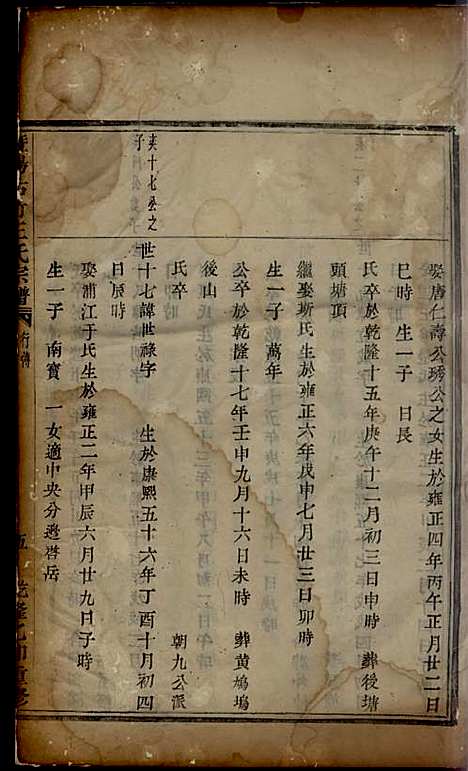 娶唐仁壽公琇公之女生於雍正四年丙午正月廿二日
巳時　生一子　日長
氏卒於乾隆十五年庚午十二月初三日申時　葬後塘
頭塘頂
繼娶斯氏生於雍正六年戊申七月廿三日卯時
生一子　萬年
公卒於乾隆十七年壬申九月十六日未時　葬黄鳩塢
後山
氏卒　朝九公派
夾十七公之
世十七諱世祿字　生於康熙五十六年丁酉十月初四
日辰時
娶浦江于氏生於雍正二年甲辰六月廿九日子時
生一子　南寶　一女適中央分邀啓岳
王氏宗譜　行傳　五　乾隆乙卯重修